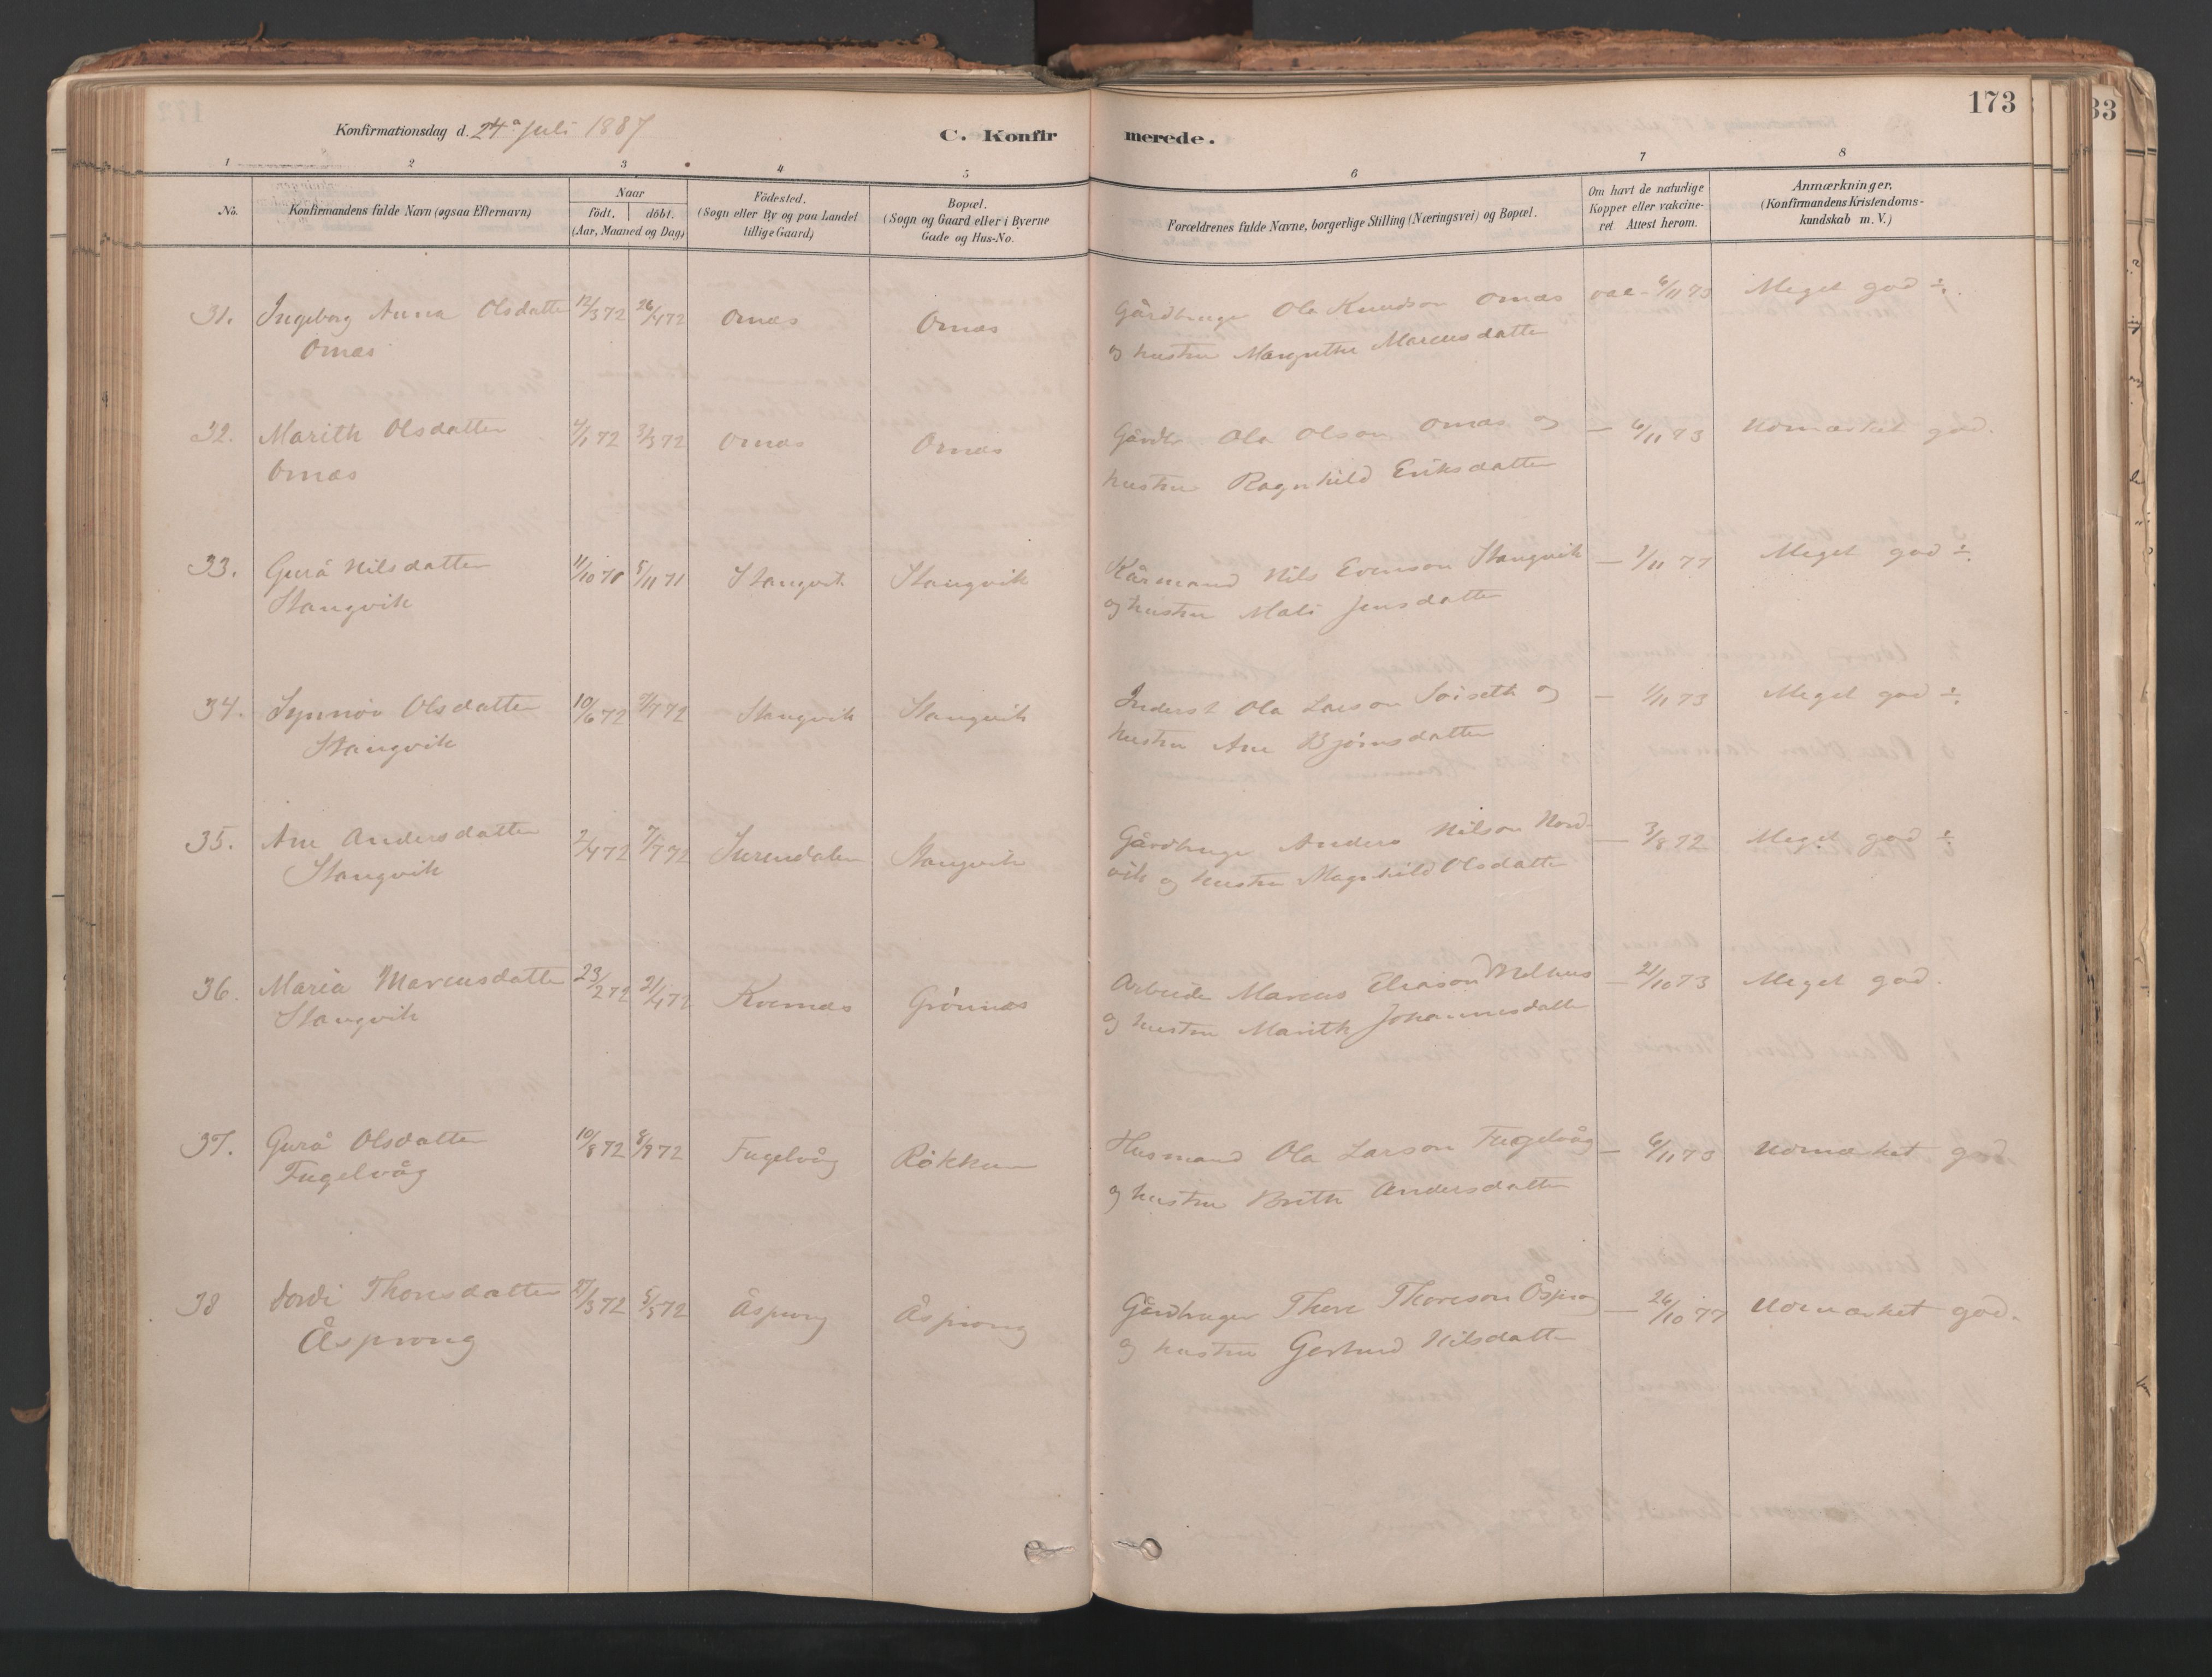 173
33
Konfirmationsdag d. 24de Juli 1887
C. Konfirmerede.
1 2 3 4 5 6 7 8
No.
Konfirmandens fulde Navn (ogsaa Efternavn)
Naar
födt. döbt.
(Aar, Maaned og Dag)
Födested.
(Sogn eller By og paa Landet
tillige Gaard)
Bopæl.
(Sogn og Gaard eller i Byerne
Gade og Hus-No.
Forældrenes fulde Navne, borgerlige Stilling (Næringsvei) og Bopæl.
Om havt de naturlige
Kopper eller vakcine-
ret Attest herom.
Anmærkninger.
(Konfirmandens Kristendoms-
kundskab m. V.)
31. Ingeborg Anna Olsdatter 12/3 72 26/4 72 Ornæs Ornæs Gårdbruger Ola Knudson Ornæs vac - 6/11 73 Meget god ÷.
Ornæs og hustru Margrethe Marcusdatter
32. Marith Olsdatter 4/1 72 3/3 72 Ornæs Ornæs Gårdbr Ola Olson Ornæs og — 6/11 73 Udmærket god.
Ornæs hustru Ragnhild Eriksdatter
33. Gurå Nilsdatter 11/10 71 5/11 71 Stangvik Stangvik Kårmand Nils Evenson Stangvik — 1/11 77 Meget god ÷
Stangvik og hustru Mali Jensdatter
34. Synnöv Olsdatter 10/6 72 7/7 72 Stangvik Stangvik Inderst Ola Larson Soiseth og — 1/11 73 Meget god ÷
Stangvik hustru Ane Björnsdatter
35. Ane Andersdatter 2/4 72 7/7 72 Surendalen Stangvik Gårdbruger Anders Nilson Nord- — 3/8 72 Meget god ÷
Stangvik vik og hustru Magnhild Olsdatter
36. Maria Marcusdatter 23/2 72 21/4 72 Kvernæs Grönnæs Arbeider Marcus Eliason Melhus — 21/10 73 Meget god.
Stangvik og hustru Marith Johannesdatter
37. Gurå Olsdatter 10/8 72 8/9 72 Fugelvåg Rökkum Husmand Ola Larson Fugelvåg — 6/11 73 Udmærket god
Fugelvåg og hustru Brith Andersdatter
38 Dordi Thoresdatter 27/3 72 5/5 72 Åsprong Åsprong Gårdbruger Thore Thoreson Åsprong — 26/10 77 Udmærket god.
Åsprong og hustru Gertrud Nilsdatter